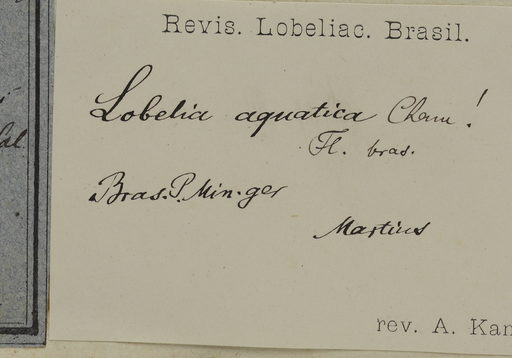 Revis. Lobeliac. Brasil.
Lobelia aquatica Cham!
Fl. bras.
Bras. P. Min. ger
Martius
rev. A. Kan